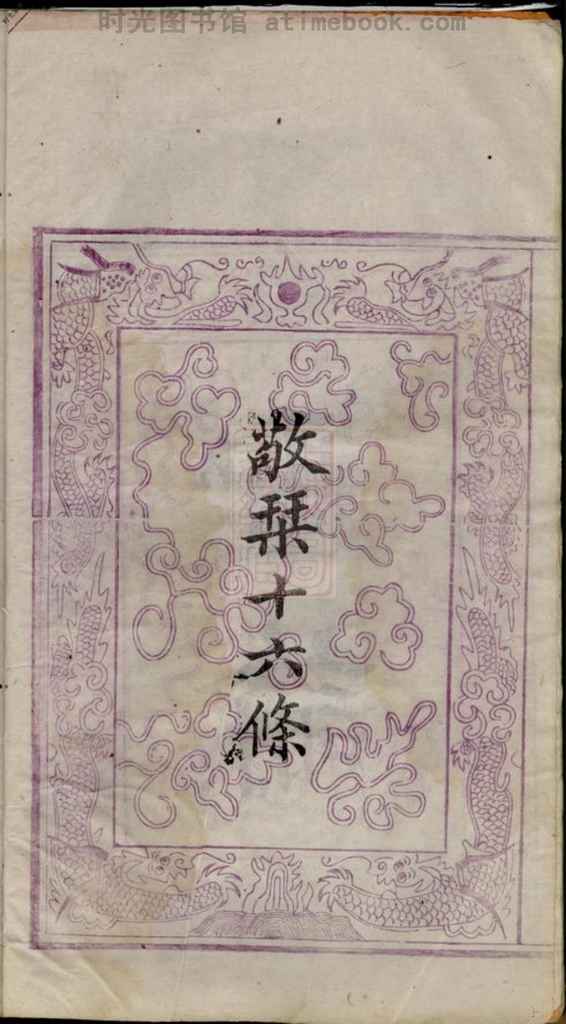 时光图书馆 atimebook.com
敬栞十六條